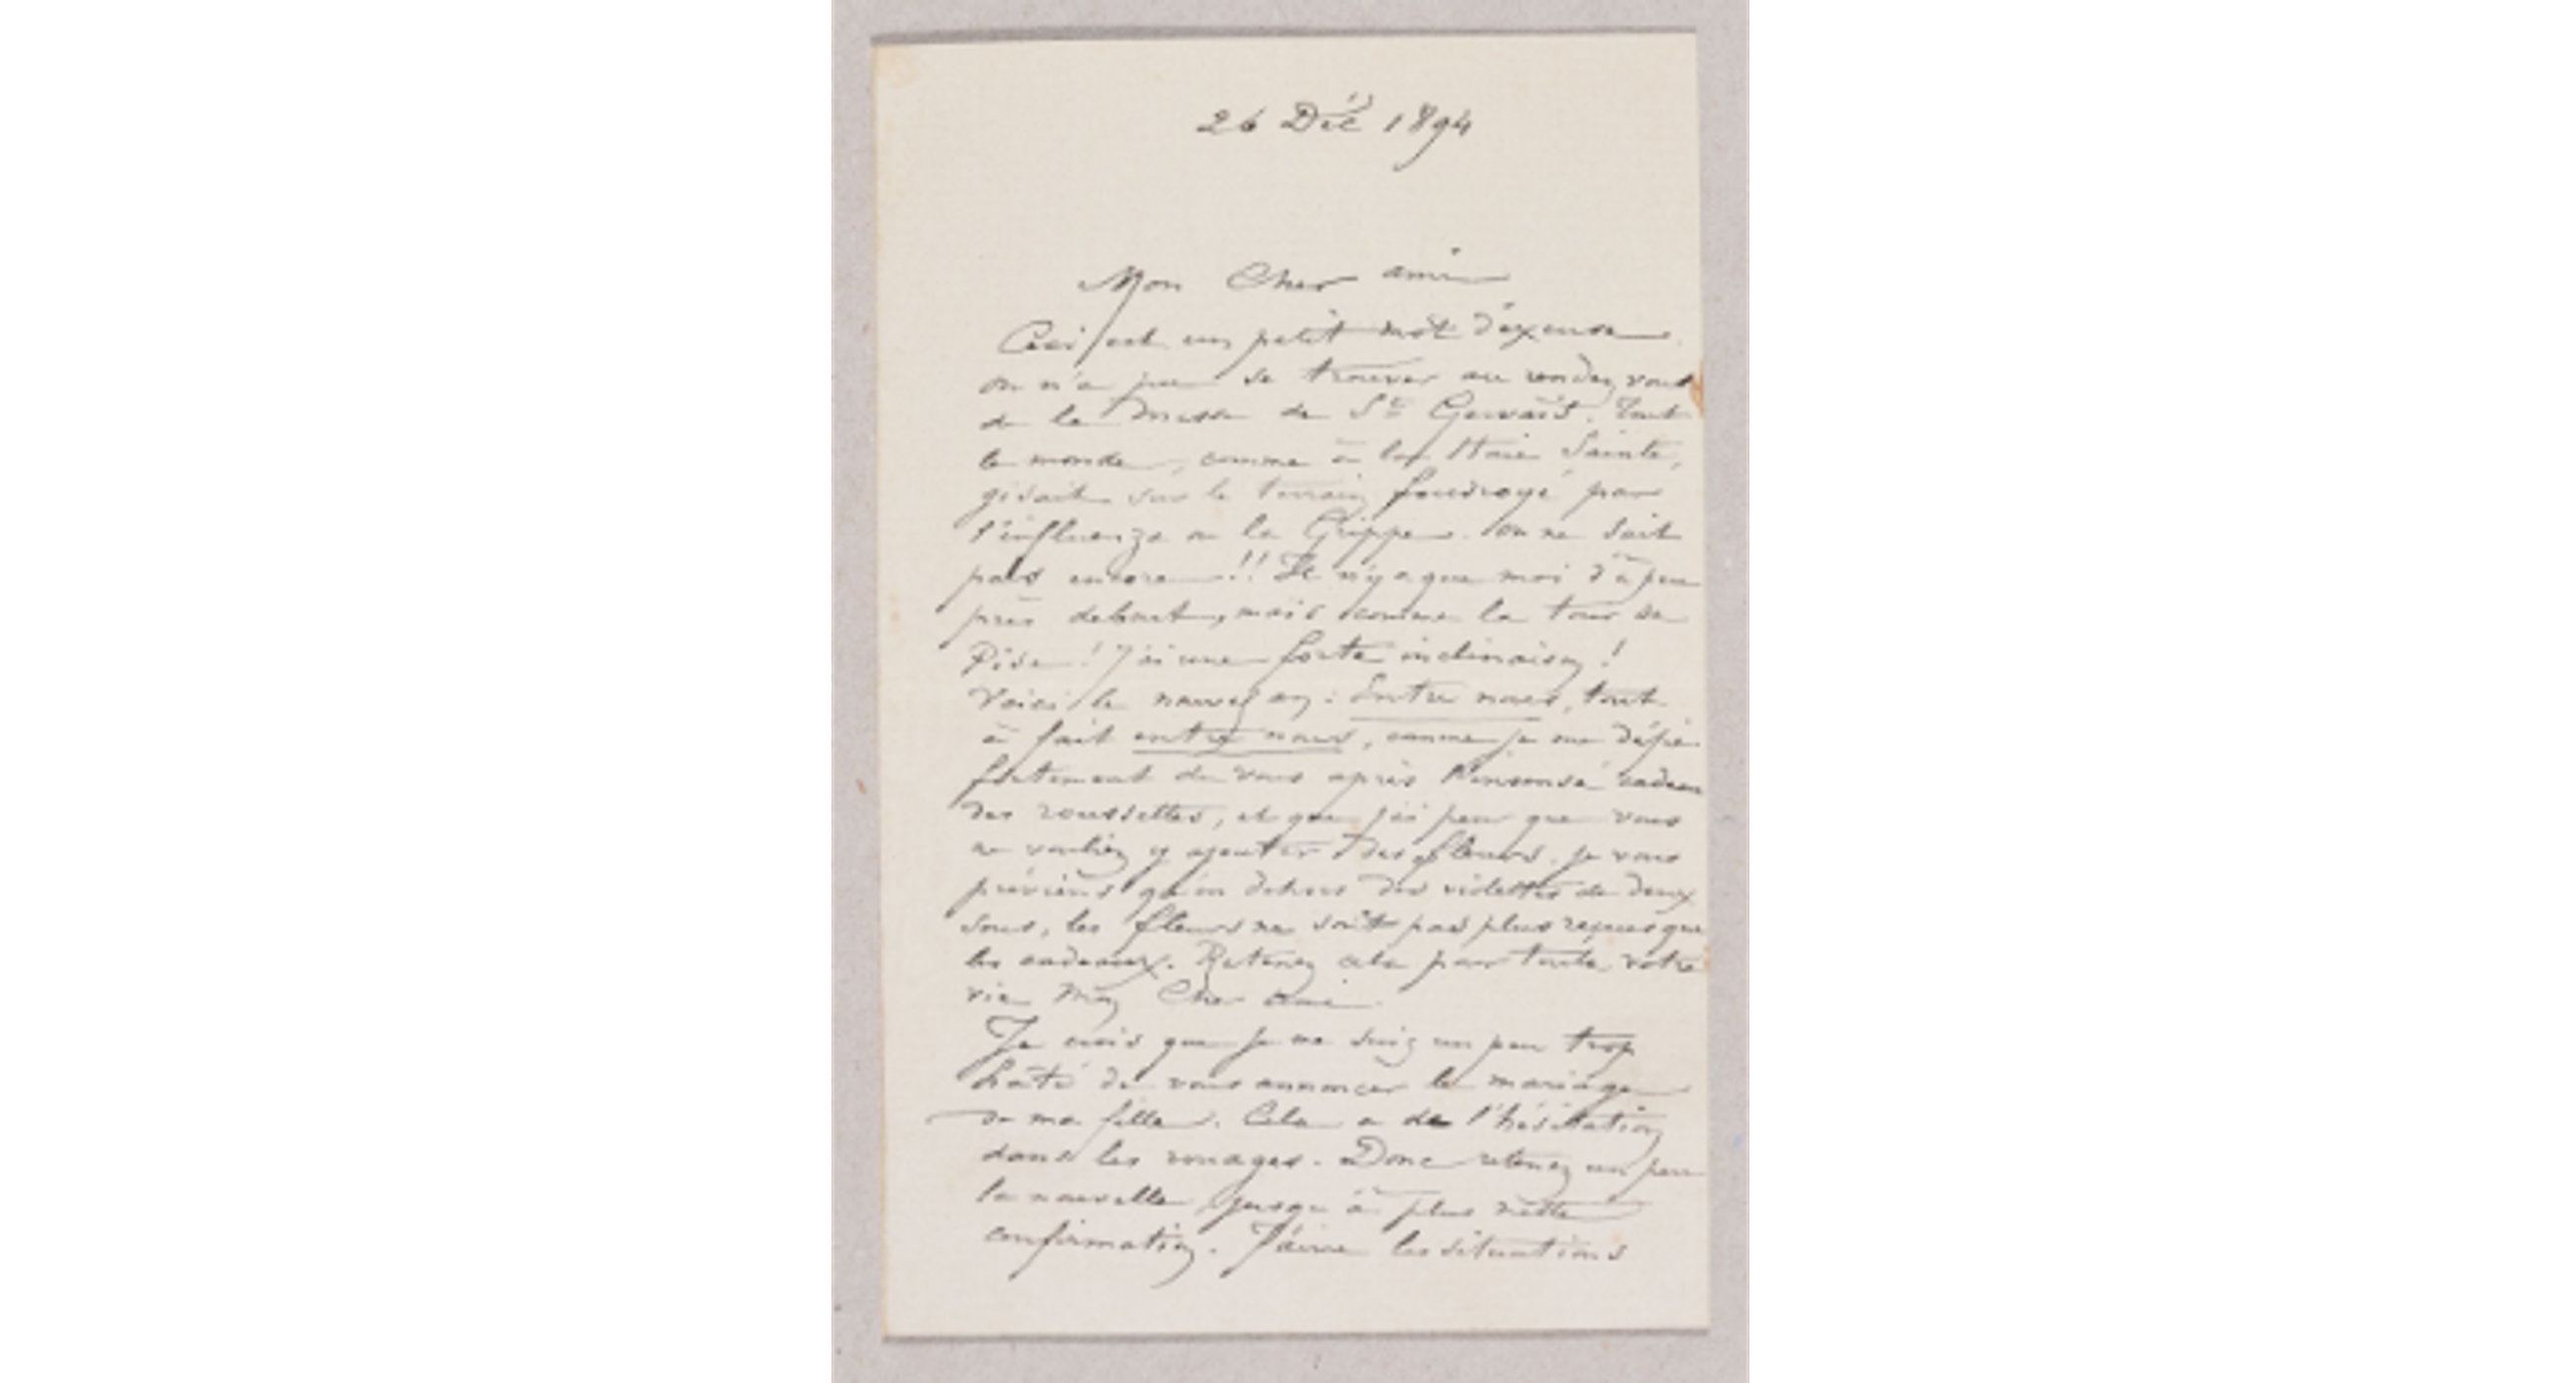 26 Déc 1894
Mon Cher ami
Ceci est un petit mot d'excuse.
on n'a pu se trouver au rendez vous
de la messe de St Gervais. Tout
le monde, comme à la Haie Sainte,
gisait sur le terrain foudroyé par
l'influenza ou la Grippe. on ne sait
pas encore !! Il n'y a que moi d'à peu
près debout, mais comme la tour de
Pise ! J'ai une forte inclinaison !
Voici le nouvel an : Entre nous, tout
à fait entre nous, comme je me défie
fortement de vous après l'insensé cadeau
des roussettes, et que j'ai peur que vous
ne vouliez y ajouter des fleurs. je vous
préviens qu'en dehors des violettes de deux
sous, les fleurs ne sont pas plus reçues que
les cadeaux. Retenez cela pour toute votre
vie Mon Cher ami.
Je crois que je me suis un peu trop
hâté de vous annoncer le mariage
de ma fille. Cela a de l'hésitation
dans les rouages. Donc retenez un peu
la nouvelle jusqu'à plus nette
confirmation. J'aime les situations